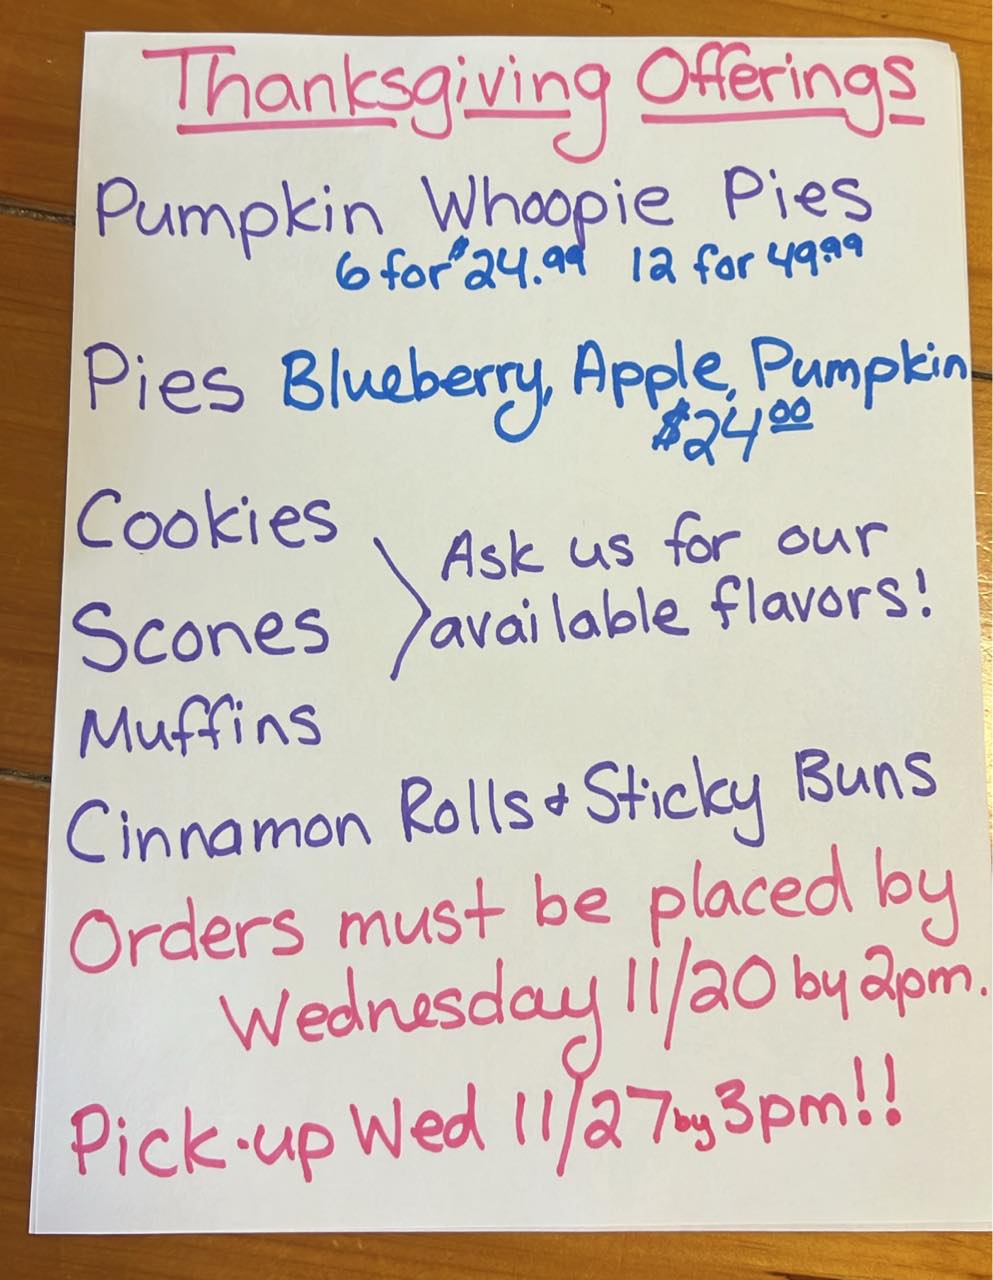 Thanksgiving Offerings
Pumpkin Whoopie Pies
6 for $24.99 12 for 49.99
Pies Blueberry, Apple, Pumpkin
$24.00
Cookies
Ask us for our
available flavors!
Scones
Muffins
Cinnamon Rolls & Sticky Buns
Orders must be placed by
Wednesday 11/20 by 2pm.
Pick-up Wed 11/27 by 3pm!!